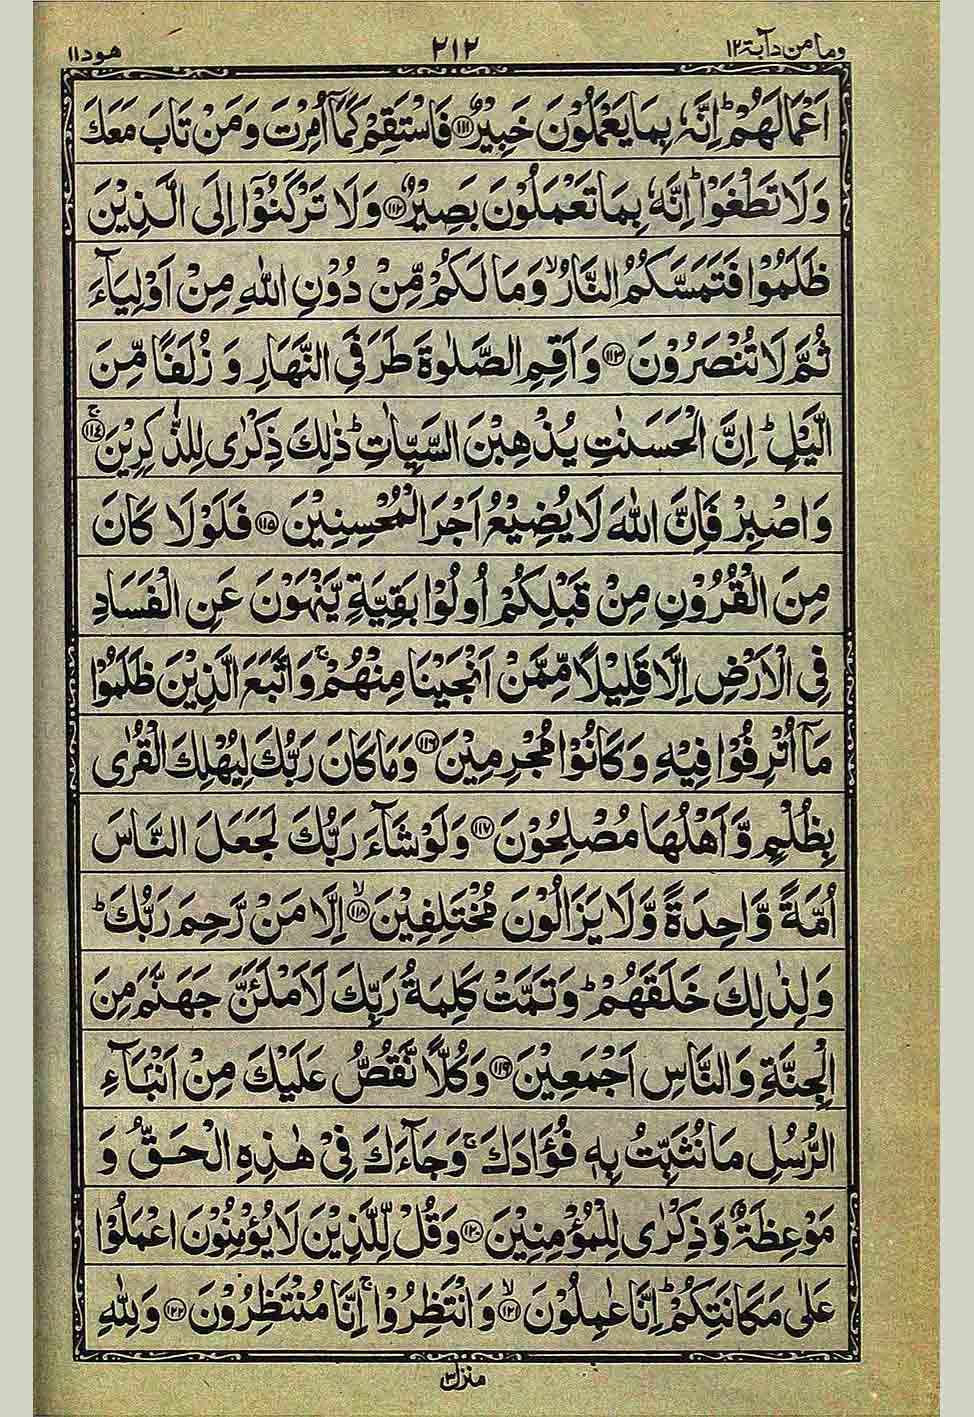 وما من دآبة ۱۲
۲۱۲
هود ۱۱
اَعْمَالَهُمْ ؕ اِنَّهٗ بِمَا یَعْمَلُوْنَ خَبِیْرٌ ۝۱۱۱ فَاسْتَقِمْ كَمَاۤ اُمِرْتَ وَ مَنْ تَابَ مَعَكَ
وَ لَا تَطْغَوْا ؕ اِنَّهٗ بِمَا تَعْمَلُوْنَ بَصِیْرٌ ۝۱۱۲ وَ لَا تَرْكَنُوْۤا اِلَى الَّذِیْنَ
ظَلَمُوْا فَتَمَسَّكُمُ النَّارُ ۙ وَ مَا لَكُمْ مِّنْ دُوْنِ اللّٰهِ مِنْ اَوْلِیَآءَ
ثُمَّ لَا تُنْصَرُوْنَ ۝۱۱۳ وَ اَقِمِ الصَّلٰوةَ طَرَفَیِ النَّهَارِ وَ زُلَفًا مِّنَ
الَّیْلِ ؕ اِنَّ الْحَسَنٰتِ یُذْهِبْنَ السَّیِّاٰتِ ؕ ذٰلِكَ ذِكْرٰى لِلذّٰكِرِیْنَ ۝۱۱۴ ۚ
وَ اصْبِرْ فَاِنَّ اللّٰهَ لَا یُضِیْعُ اَجْرَ الْمُحْسِنِیْنَ ۝۱۱۵ فَلَوْ لَا كَانَ
مِنَ الْقُرُوْنِ مِنْ قَبْلِكُمْ اُولُوْا بَقِیَّةٍ یَّنْهَوْنَ عَنِ الْفَسَادِ
فِی الْاَرْضِ اِلَّا قَلِیْلًا مِّمَّنْ اَنْجَیْنَا مِنْهُمْ ۚ وَ اتَّبَعَ الَّذِیْنَ ظَلَمُوْا
مَاۤ اُتْرِفُوْا فِیْهِ وَ كَانُوْا مُجْرِمِیْنَ ۝۱۱۶ وَ مَا كَانَ رَبُّكَ لِیُهْلِكَ الْقُرٰى
بِظُلْمٍ وَّ اَهْلُهَا مُصْلِحُوْنَ ۝۱۱۷ وَ لَوْ شَآءَ رَبُّكَ لَجَعَلَ النَّاسَ
اُمَّةً وَّاحِدَةً وَّ لَا یَزَالُوْنَ مُخْتَلِفِیْنَ ۝۱۱۸ ۙ اِلَّا مَنْ رَّحِمَ رَبُّكَ ؕ
وَ لِذٰلِكَ خَلَقَهُمْ ؕ وَ تَمَّتْ كَلِمَةُ رَبِّكَ لَاَمْلَـَٔنَّ جَهَنَّمَ مِنَ
الْجِنَّةِ وَ النَّاسِ اَجْمَعِیْنَ ۝۱۱۹ وَ كُلًّا نَّقُصُّ عَلَیْكَ مِنْ اَنْۢبَآءِ
الرُّسُلِ مَا نُثَبِّتُ بِهٖ فُؤَادَكَ ۚ وَ جَآءَكَ فِیْ هٰذِهِ الْحَقُّ وَ
مَوْعِظَةٌ وَّ ذِكْرٰى لِلْمُؤْمِنِیْنَ ۝۱۲۰ وَ قُلْ لِّلَّذِیْنَ لَا یُؤْمِنُوْنَ اعْمَلُوْا
عَلٰى مَكَانَتِكُمْ ؕ اِنَّا عٰمِلُوْنَ ۝۱۲۱ ۙ وَ انْتَظِرُوْا ۚ اِنَّا مُنْتَظِرُوْنَ ۝۱۲۲ وَ لِلّٰهِ
منزل ۳